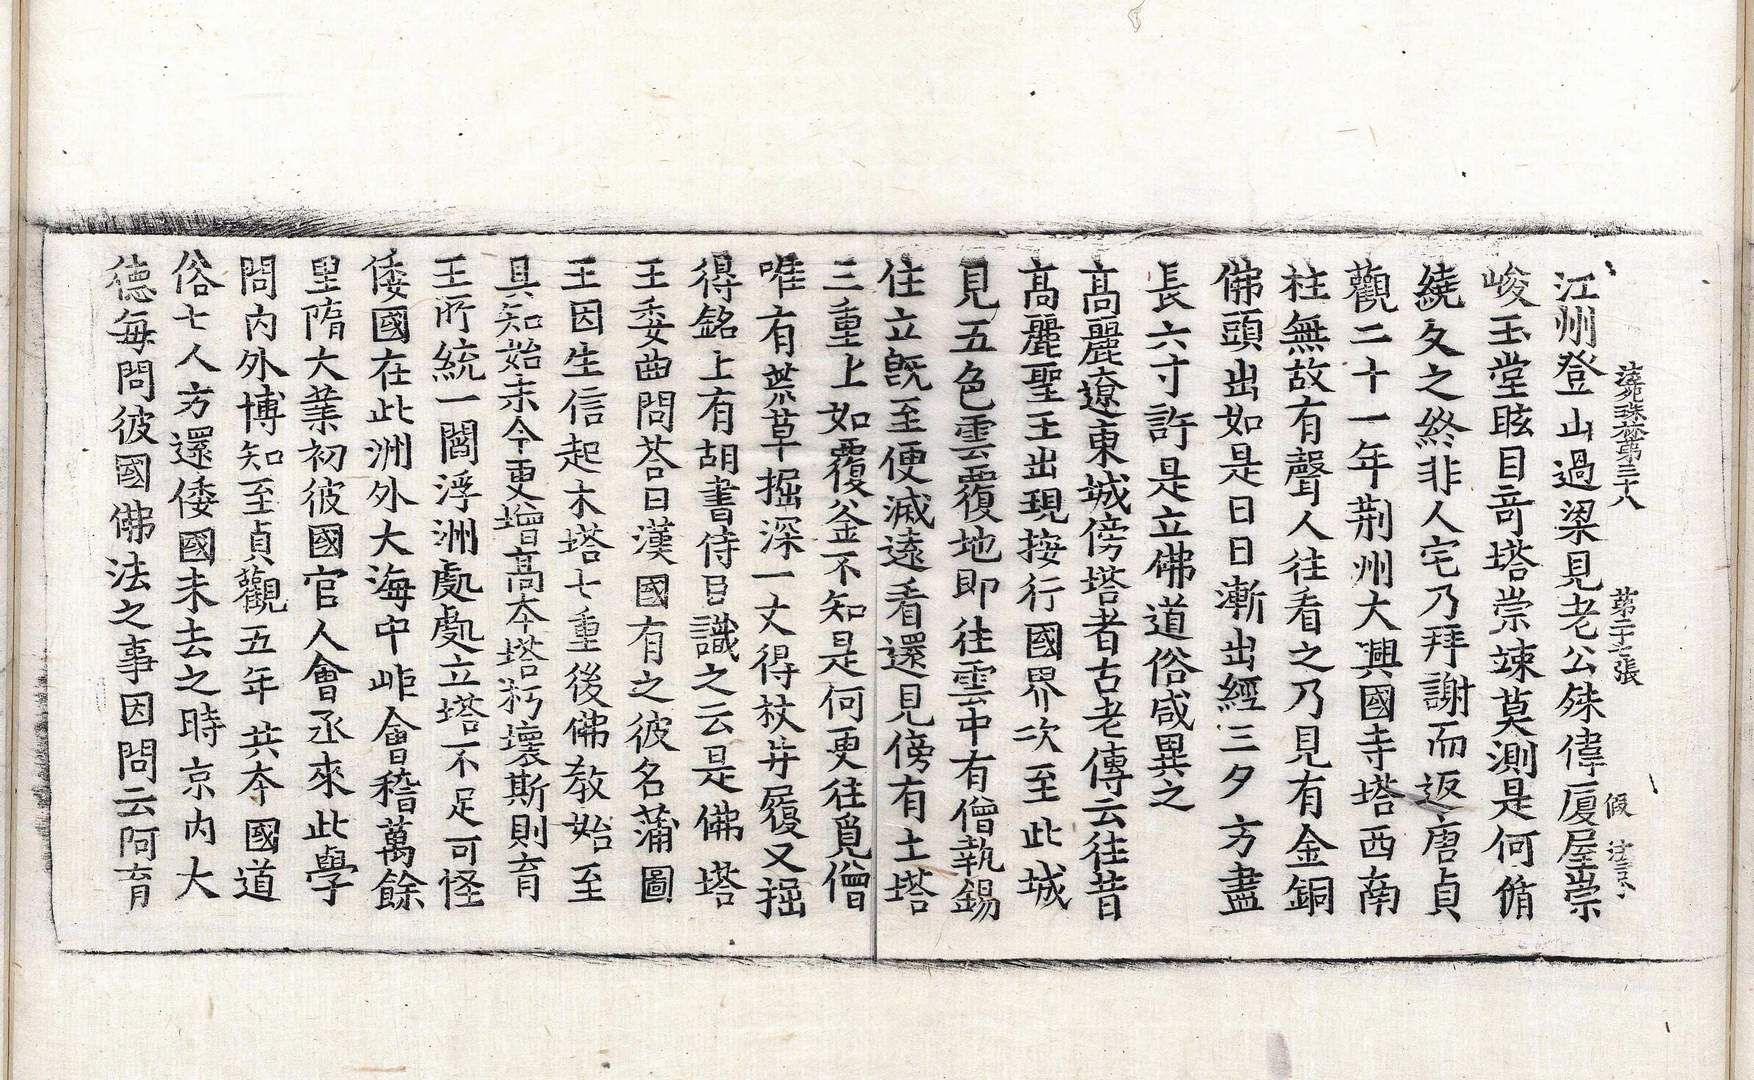 法苑珠林第三十八 第二十七張 假
江州登山過梁見老公殊偉廈屋崇
峻玉堂眩目奇塔崇竦莫測是何脩
繞久之終非人宅乃拜謝而返唐貞
觀二十一年荆州大興國寺塔西南
柱無故有聲人往看之乃見有金銅
佛頭出如是日日漸出經三夕方盡
長六寸許是立佛道俗咸異之
高麗遼東城傍塔者古老傳云往昔
高麗聖王出現按行國界次至此城
見五色雲覆地即往雲中有僧執錫
住立旣至便滅遠看還見傍有土塔
三重上如覆釜不知是何更往覓僧
唯有荒草掘深一丈得杖并履又掘
得銘上有胡書侍臣識之云是佛塔
王委曲問荅曰漢國有之彼名蒲圖
王因生信起木塔七重後佛教始至
具知始末今更增高本塔朽壞斯則育
王所統一閻浮洲處處立塔不足可怪
倭國在此洲外大海中岠會稽萬餘
里隋大業初彼國官人會丞來此學
問內外博知至貞觀五年共本國道
俗七人方還倭國未去之時京內大
德每問彼國佛法之事因問云阿育